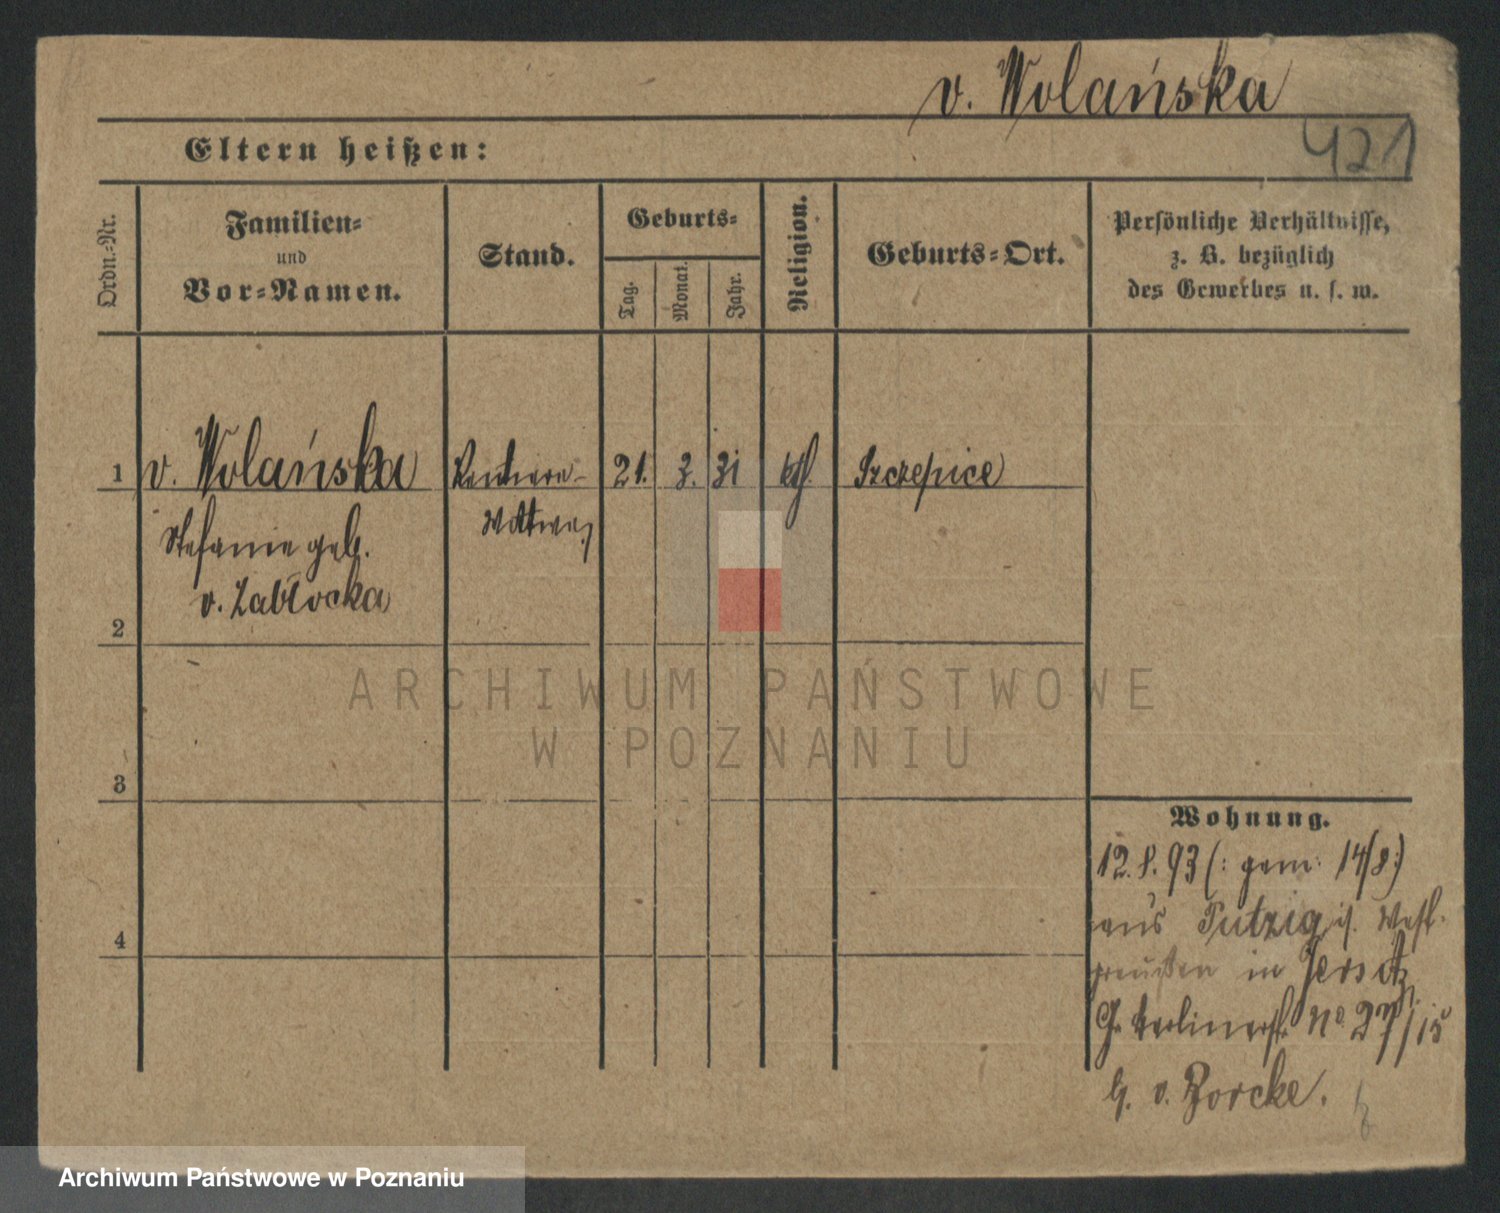 v. Wolańska
421
Eltern heißen:
Ordn.-Nr.
Familien-
und
Vor-Namen.
Stand.
Geburts-
Tag.
Monat.
Jahr.
Religion.
Geburts-Ort.
Persönliche Verhältnisse,
z. B. bezüglich
des Gewerbes u. s. w.
1 v. Wolańska Rentiere- 21. 3. 31 kth. Szczepice
Wittwe
Stefanie geb.
v. Zabłocka
2
3
4
Wohnung.
12.8.93 (: gem: 14/8:)
aus Putzig i. West-
preußen in Jersitz
Gr. Berlinerstr. No 27/15
b. v. Zorcke.
ARCHIWUM PAŃSTWOWE
W POZNANIU
Archiwum Państwowe w Poznaniu